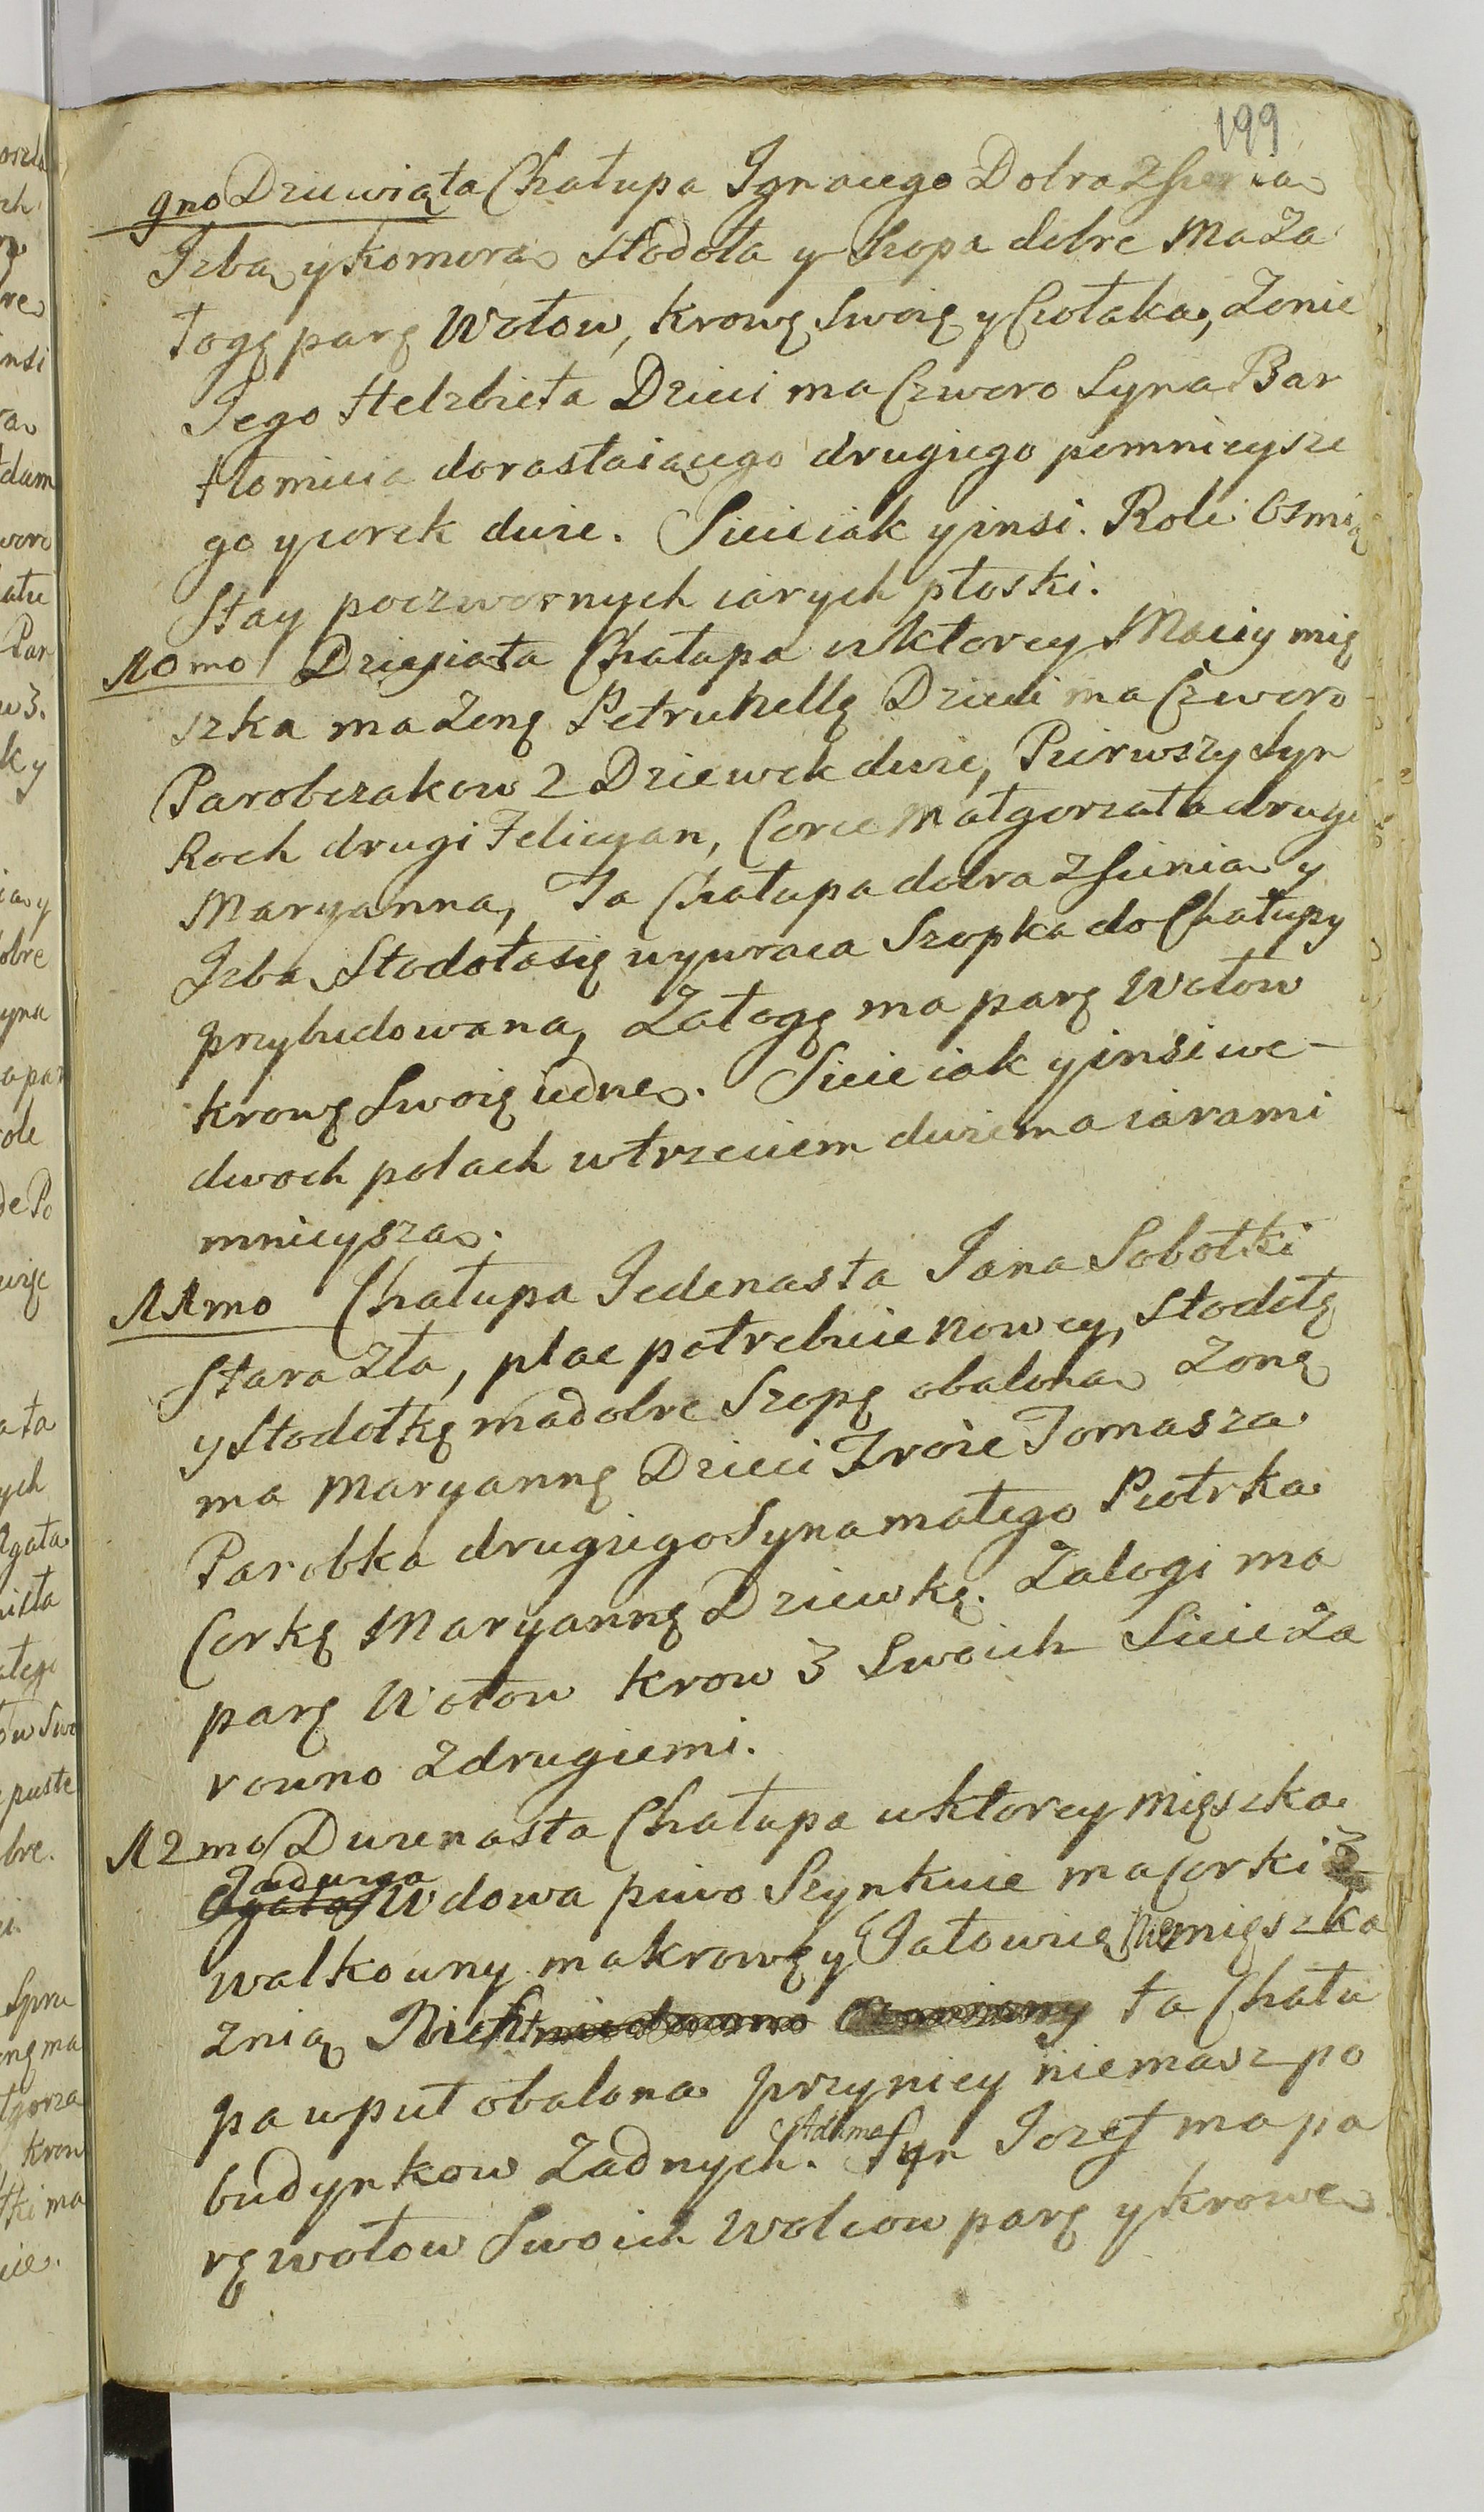 199
9no Dziewiąta Chałupa Ignacego Dobra z sienia
Izba y komora Stodoła y Szopa dobre Ma Za
łogę parę Wołow, krowę Swoię y Ciołaka, Zonie
Jego Helzbieta Dzieci ma Czworo Syna Bar
tłomieia dorastaiącego drugiego pomnieysze
go y corek dwie. Sieie iak y insi. Roli Osmią
Stay poczwornych iarych płoski.
10mo Dziesiąta Chałupa w ktorey Maciy mię
szka ma Zonę Petrunellę Dzieci ma Czworo
Parobczakow 2 Dziewek dwie, Pierwszy Syn
Roch drugi Felicyan, Corce Małgorzata druga
Maryanna, Ta Chałupa dobra z sienia y
Izba, Stodoła się wywraca Szopka do Chałupy
przybudowana, Załogę ma parę Wołow
krowę Swoię iedne. Sieie iak y insi we-
dwoch polach w trzeciem dwiema iarami
mnieysza.
11mo Chałupa Iedenasta Jana Sobotki
Stara Zła, plac potrebuie nowey, Stodołę
y Stodołkę ma dobre Szopę obalona Zonę
ma Maryannę Dzieci Troie Tomasza
Parobka drugiego Syna małego Piotrka
Corkę Maryannę Dziewkę. Zalogi ma
parę Wołow krow 3 Swoich Sieie Za
rowno z drugiemi.
12mo Dwunasta Chałupa w ktorey mięszka
Jadwiga
Agata Wdowa piwo Szynkuie ma Corki 3
Walkowny ma krowę y Jałowię Nie mięszka
z nią ta Chału
pa w puł obalona przy niey niemasz po
budynkow Zadnych. Adama Syn Jozef ma pa
rę wołow Swoich Wolcow parę y krowe